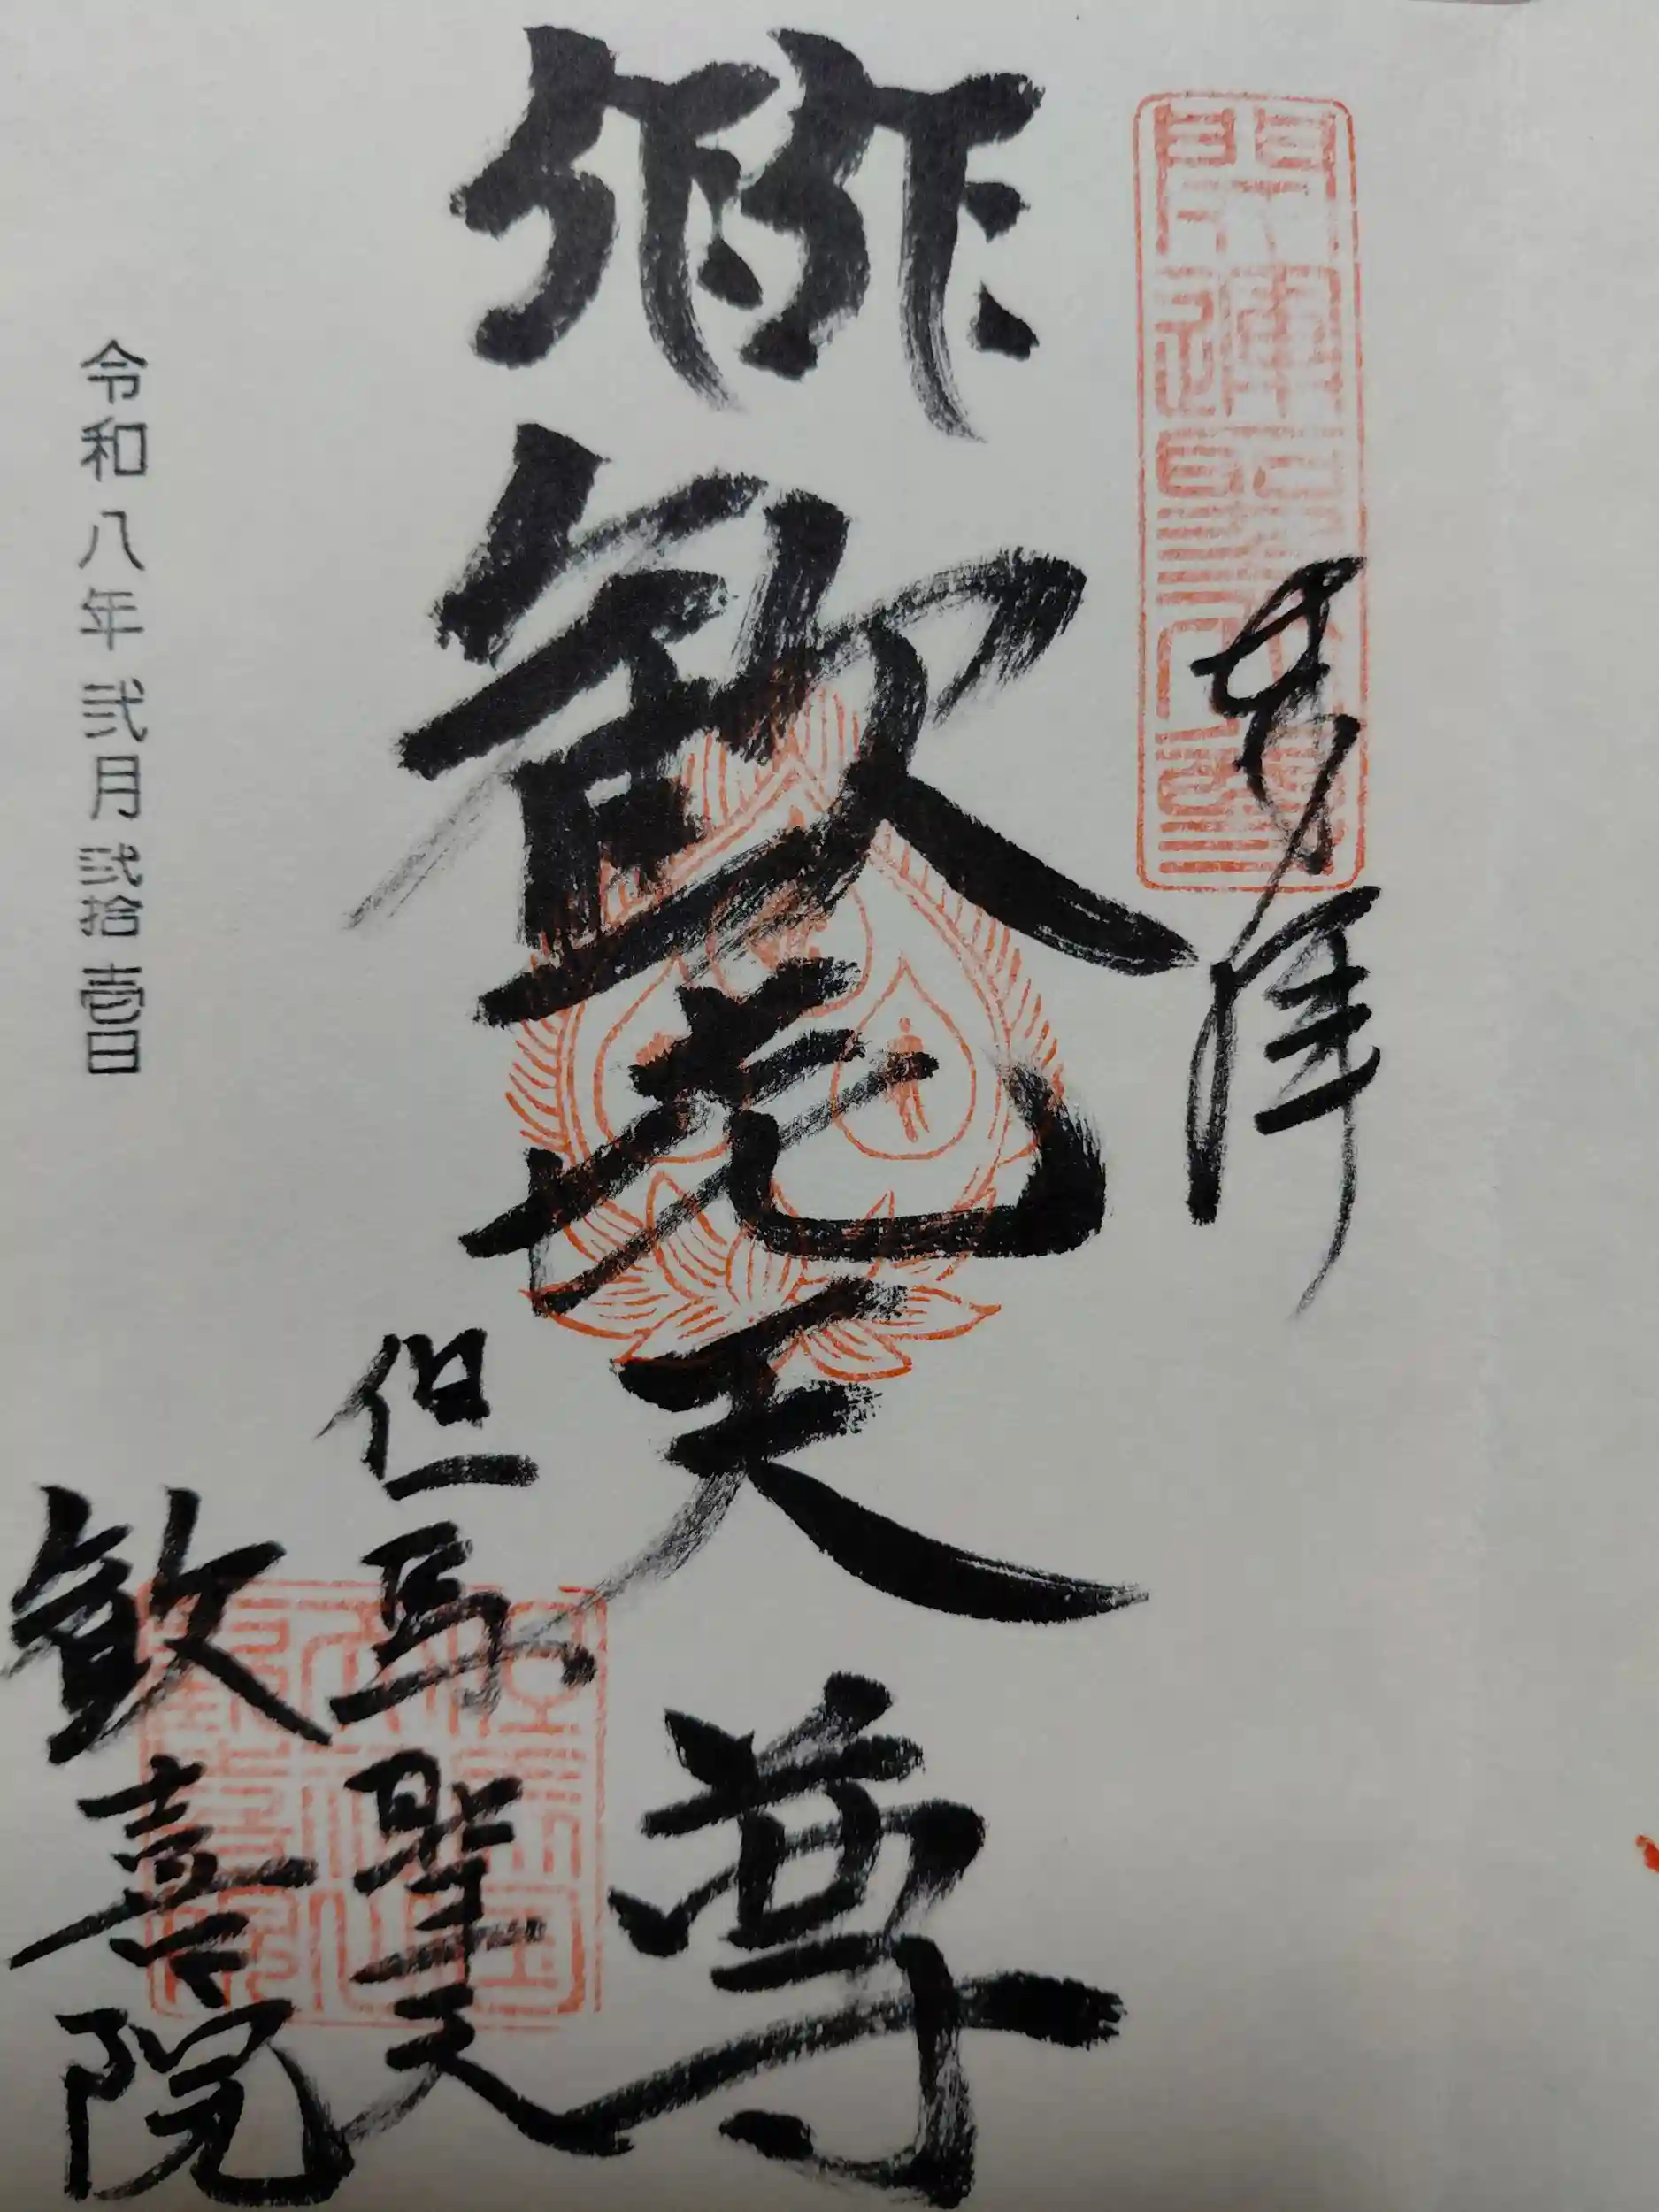 奉拝
歓㐂天尊
但馬聖天
歓喜院
令和八年弐月弐拾壹日